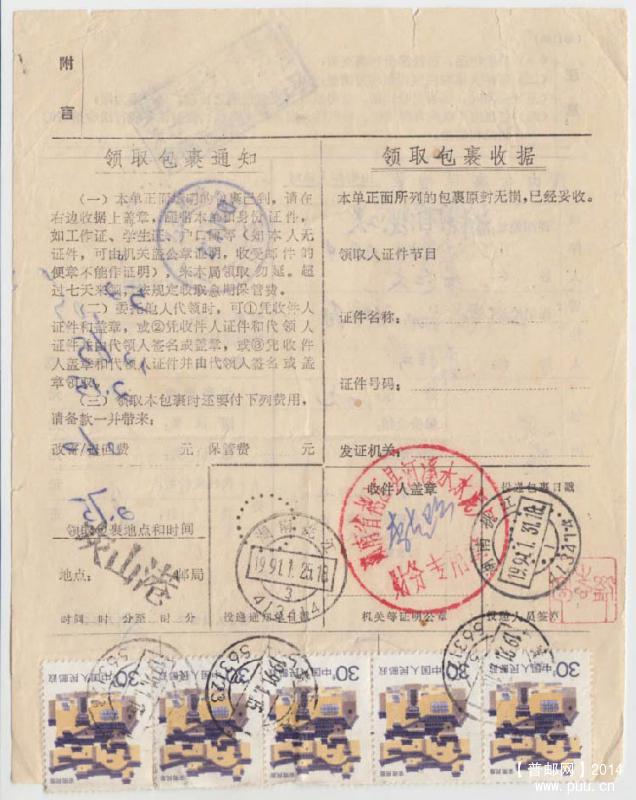 附言
领取包裹通知
（一）本单正面所列的包裹已到，请在
右边收据上盖章，随带本单和身份证件，
如工作证、学生证、户口簿等（如本人无
证件，可由机关盖公章证明，收受邮件的
便章不能作证明），来本局领取勿延。超
过七天来领，按规定收取逾期保管费。
（二）委托他人代领时，可①凭收件人
证件和盖章，或②凭收件人证件和代领人
证件并由代领人签名或盖章，或③凭收件
人盖章和代领人证件并由代领人签名或盖
章领取。
（三）领取本包裹时还要付下列费用，
请备款一并带来：
改寄/退回费 元 保管费 元
领取包裹地点和时间
地点： 邮局
峡山港
时间 时 分至 时 分
投递通知单日戳
湖南桃江
1991.1.25.18
3
413414
领取包裹收据
本单正面所列的包裹原封无损，已经妥收。
领取人证件节目
证件名称：
证件号码：
发证机关：
收件人盖章
投递包裹日戳
财务专用
湖南桃江
1991.1.31.18
机关等证明公章
投递人员签章
563123
563123
30分 中国人民邮政
30分 中国人民邮政
30分 中国人民邮政
30分 中国人民邮政
30分 中国人民邮政
安徽民居
安徽民居
安徽民居
安徽民居
安徽民居
【普邮网】2014
www.puu.cn